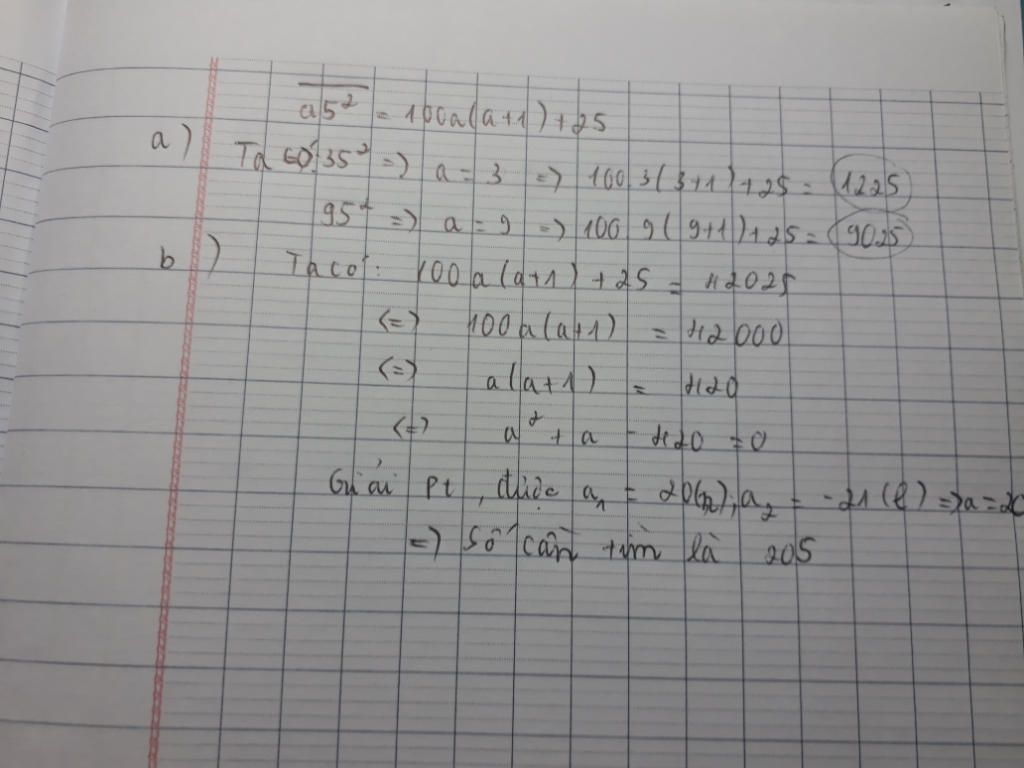 a5² = 100a(a+1)+25
a) Ta có: 35² => a = 3 => 100 3(3+1)+25 = 1225
95² => a = 9 => 100 9(9+1)+25 = 9025
b) Ta có: 100a(a+1) + 25 = 42025
<=> 100a(a+1) = 42000
<=> a(a+1) = 420
<=> a² + a - 420 = 0
Giải pt, được a₁ = 20(n); a₂ = -21(l) => a = 20
=> Số cần tìm là 205